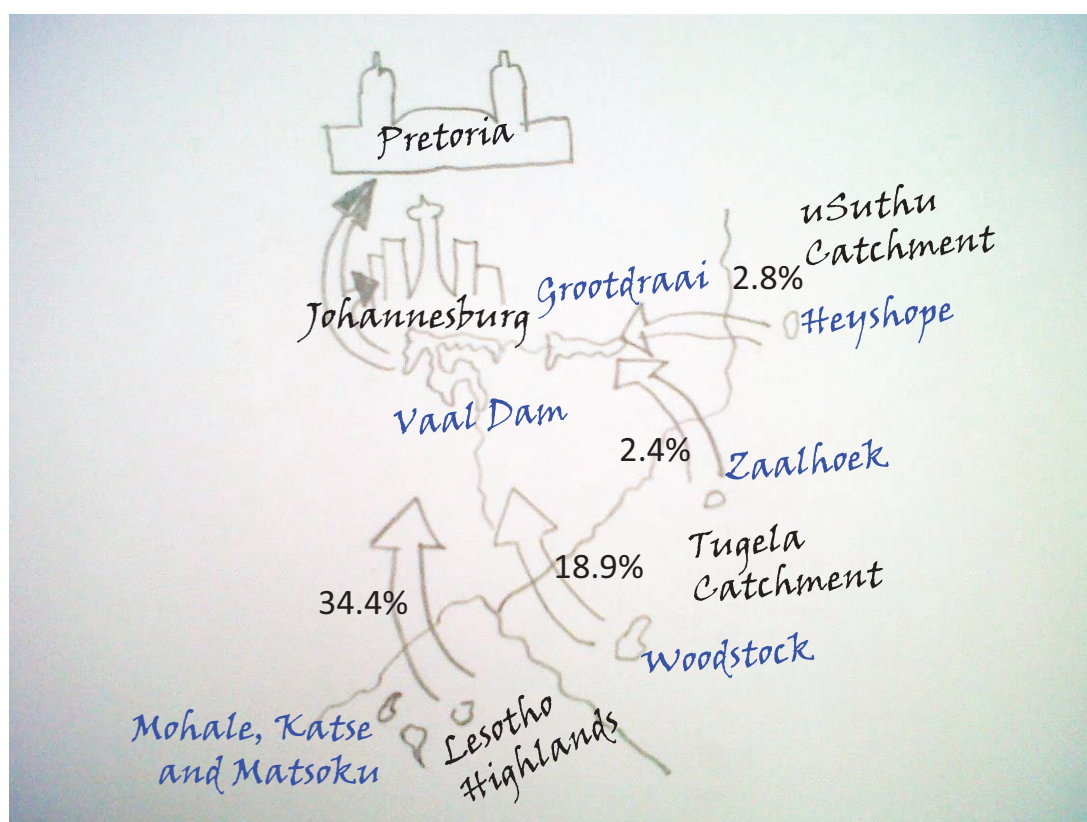 Pretoria
uSuthu
Catchment
Grootdraai
2.8%
Johannesburg
Heyshope
Vaal Dam
2.4%
Zaalhoek
Tugela
Catchment
18.9%
34.4%
Woodstock
Mohale, Katse
and Matsoku
Lesotho
Highlands